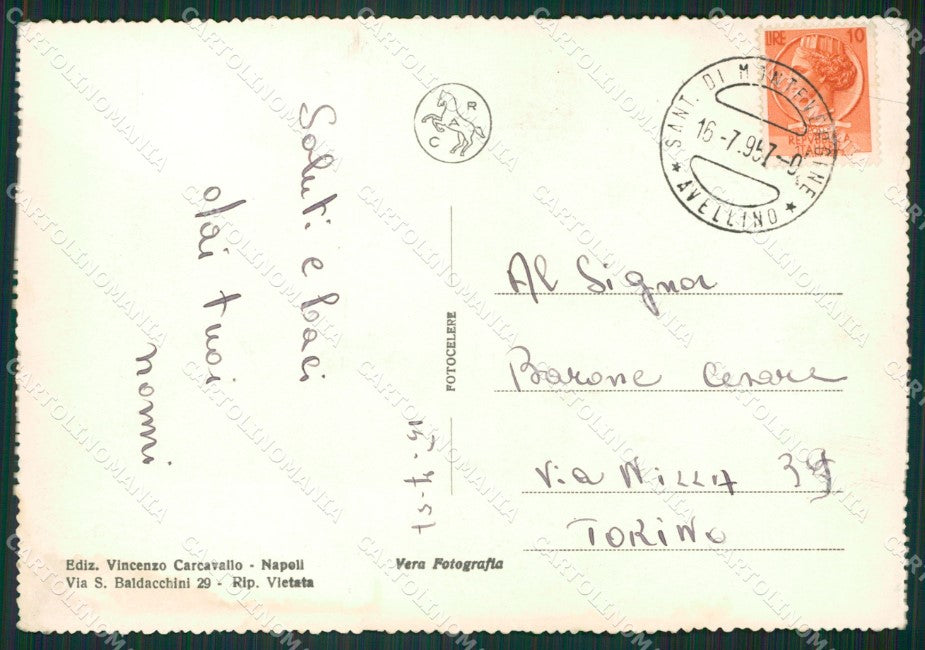 Saluti e baci
dai tuoi
nonni
15-7-57
R
A
C
LIRE 10
REPUBBLICA
ITALIANA
SANT. DI MONTEVERGINE
16-7.957-0
* AVELLINO *
FOTOCELERE
Al Signor
Barone Cesare
Via Nizza 39
TORINO
Ediz. Vincenzo Carcavallo - Napoli
Via S. Baldacchini 29 - Rip. Vietata
Vera Fotografia
CARTOLINOMANIA